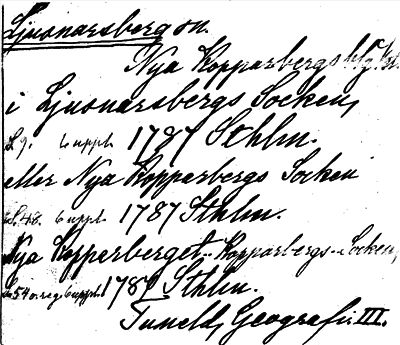 Ljusnarsberg sn.
Nya Kopparbergs
i Ljusnarsbergs Socken,
6 uppl. 1787 Sthlm.
eller Nya Kopparbergs Socken
S. 48. 6 uppl. 1787 Sthlm.
Nya Kopparberget- Kopparbergs- Socken,
S. 54 o. reg. 6 uppl. 1787 Sthlm.
Tuneld, Geografi. III.